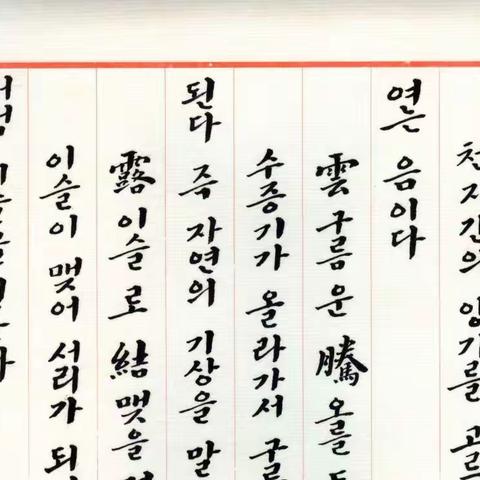 천지간의 양기를 고르
여는 음이다
雲 구름 운 騰 오를
수증기가 올라가서 구름
된다 즉 자연의 기상을 말
露 이슬 로 結 맺을
이슬이 맺어 서리가 되